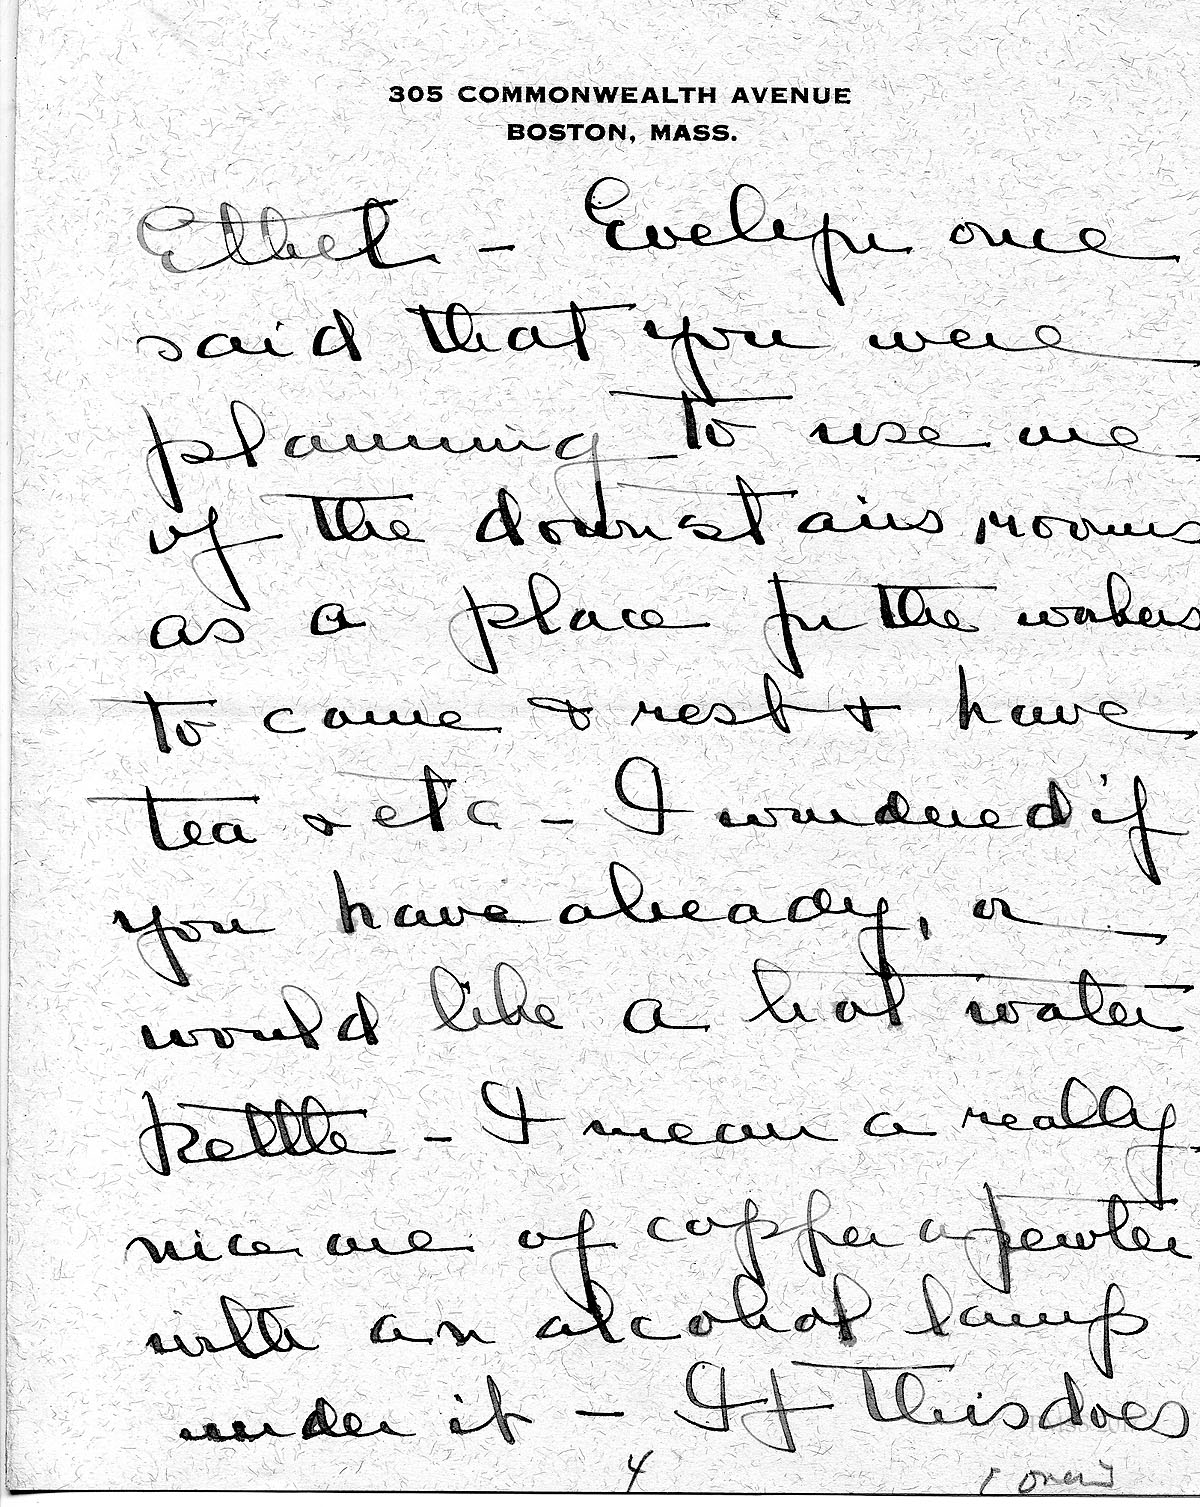 305 COMMONWEALTH AVENUE
BOSTON, MASS.
Ethel - Evelyn once
said that you were
planning to use one
of the downstairs rooms
as a place for the workers
to come & rest & have
tea & etc - I wondered if
you have already, or
would like a hot water
kettle - I mean a really
nice one of copper or pewter
with an alcohol lamp
under it - If this does
4 (over)